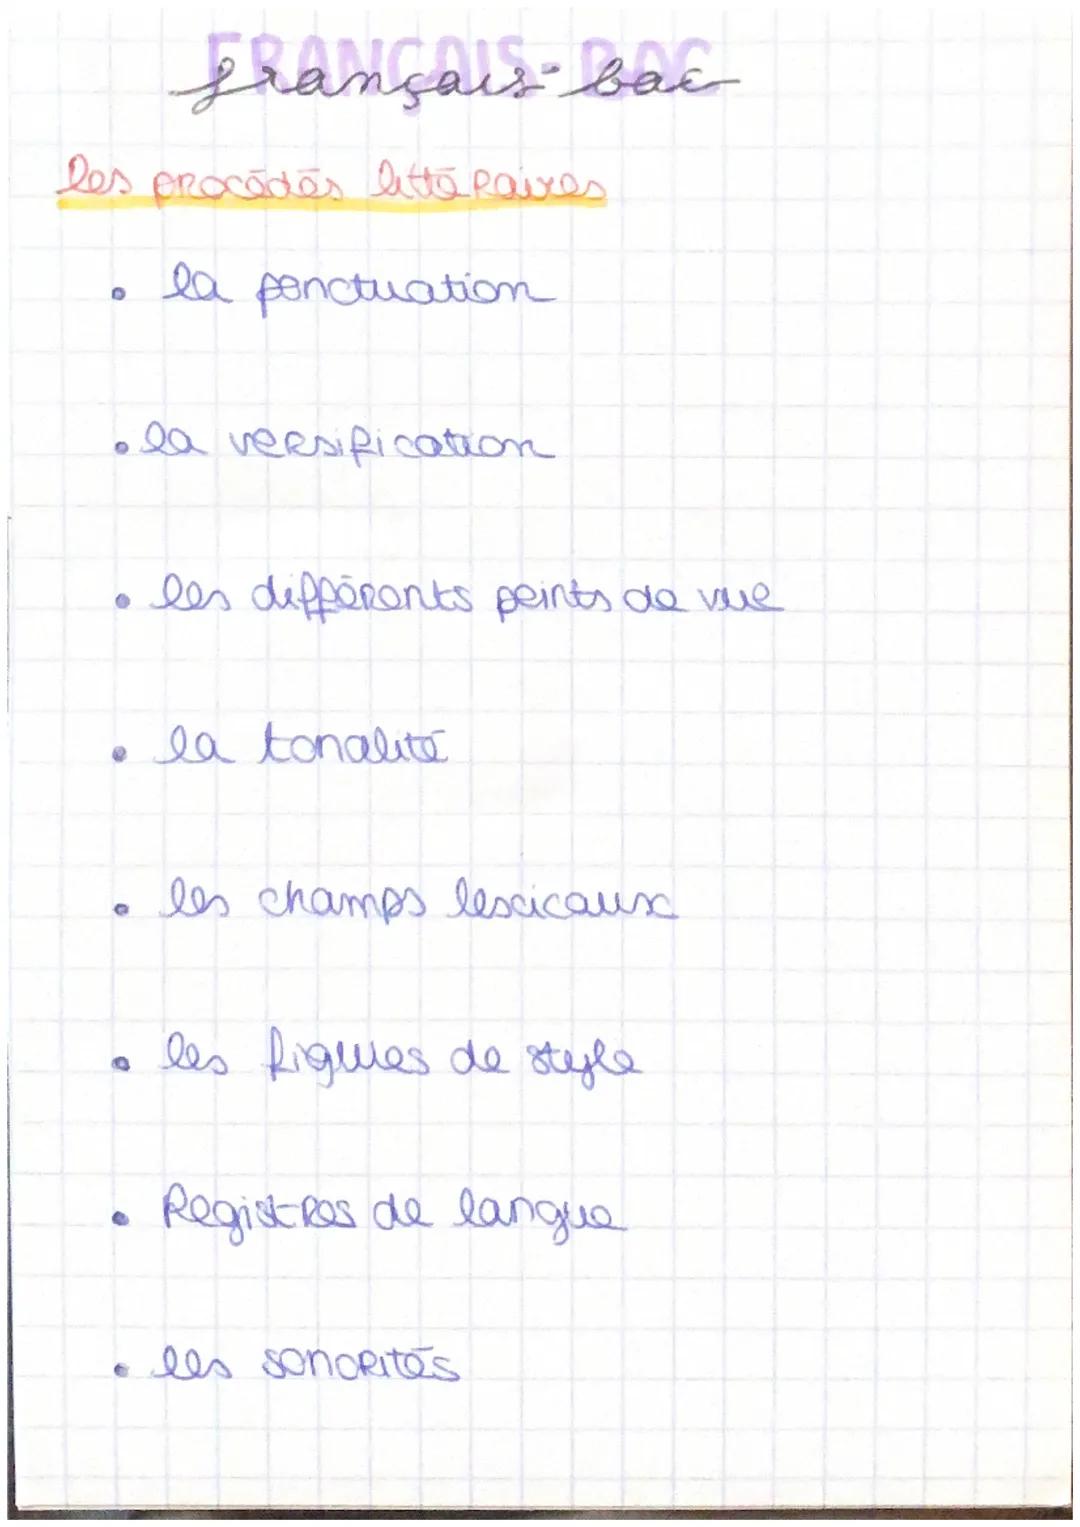 FRANÇAIS-BAC
français-bac
les procédés littéraires
• la ponctuation
• la versification
• les différents points de vue
• la tonalité
• les champs lescicaux
• les figures de style
• Registres de langue
• les sonorités